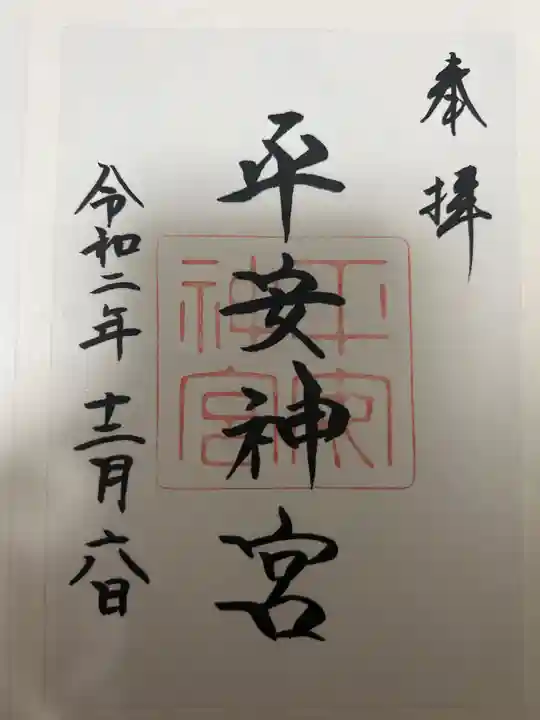 奉拝
平安神宮
平安神宮
令和二年十二月六日